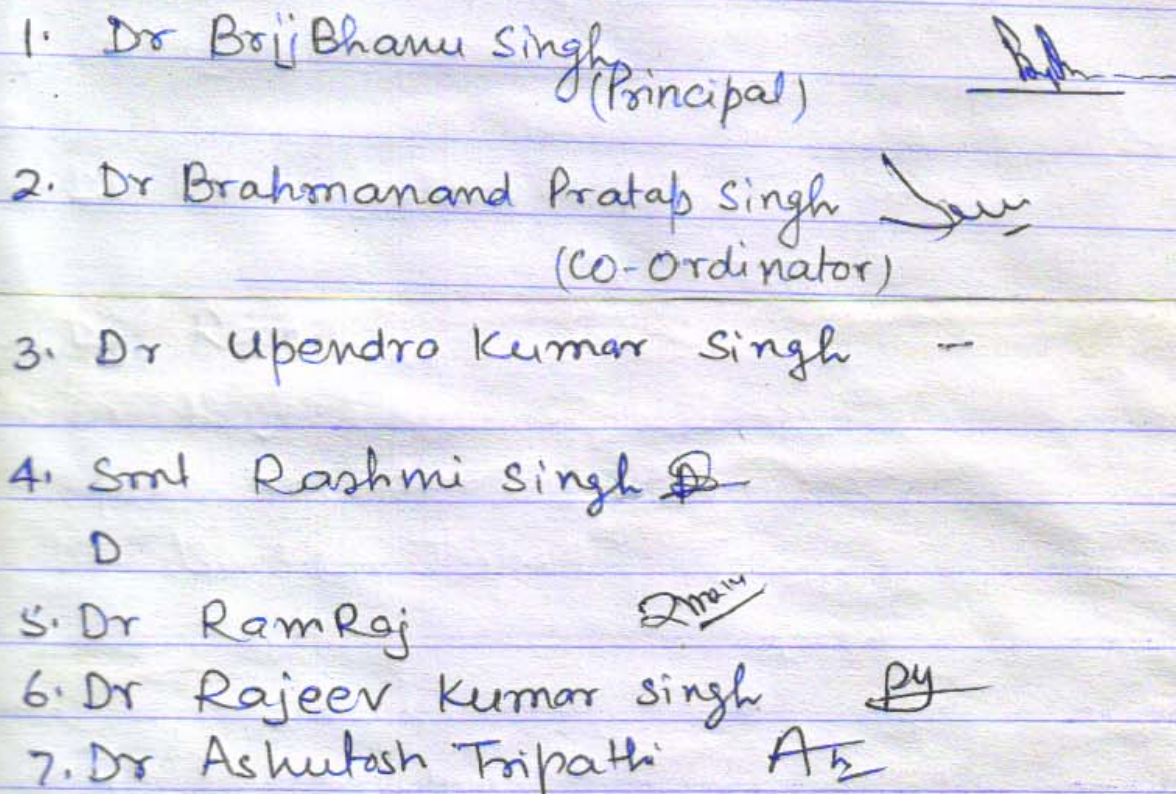 1. Dr Brij Bhanu Singh
(Principal)
2. Dr Brahmanand Pratap Singh
(Co-Ordinator)
3. Dr Upendro Kumar Singh -
4. Smt Rashmi Singh
D
5. Dr RamRaj
6. Dr Rajeev Kumar Singh
7. Dr Ashutosh Tripathi